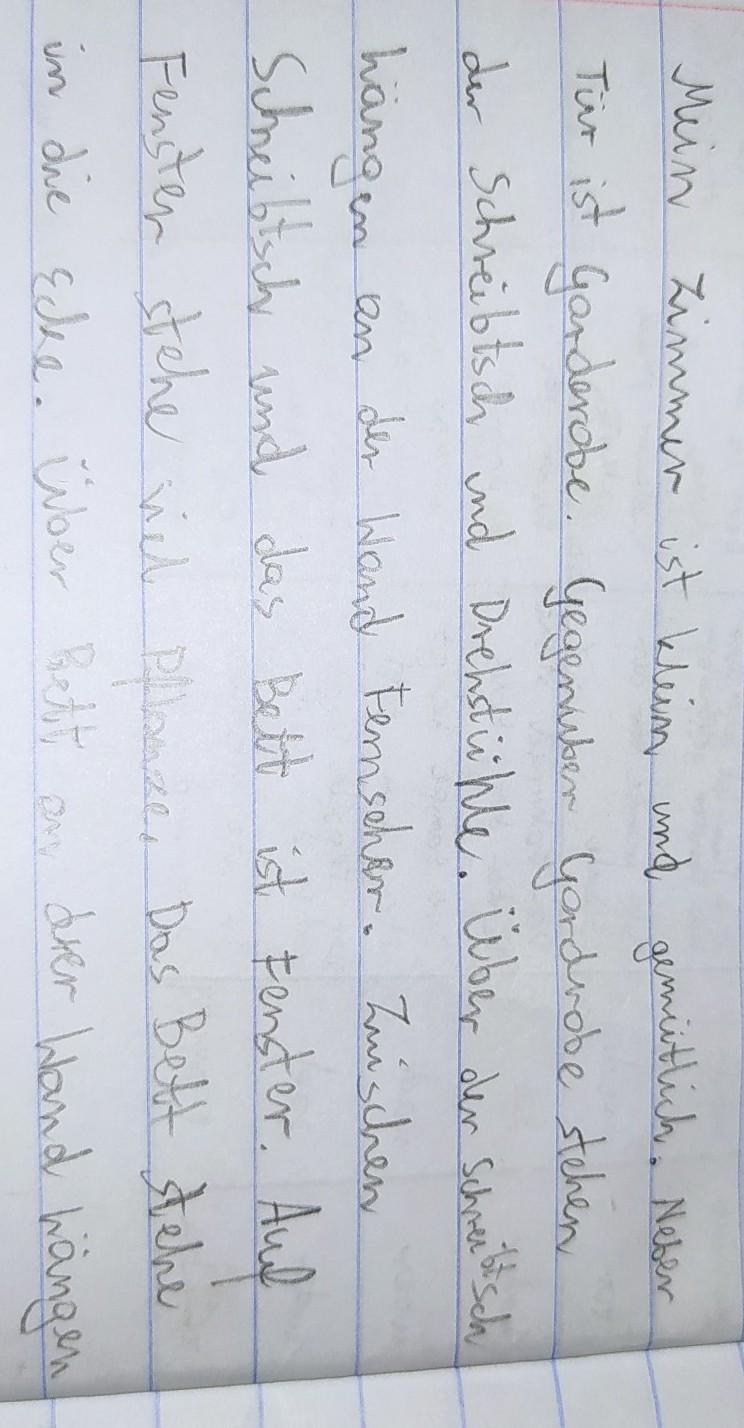 Mein Zimmer ist klein und gemütlich. Neber
Tür ist Garderobe. Gegenüber Gardrobe stehen
der Schreibtsch und Drehstühle. Über der Schreibtsch
hängen an der Wand Fernseher. Zwischen
Schreibtsch und das Bett ist Fenster. Auf
Fenster stehe viel Pflanze. Das Bett stehe
in die Ecke. Über Bett an drer Wand hängen